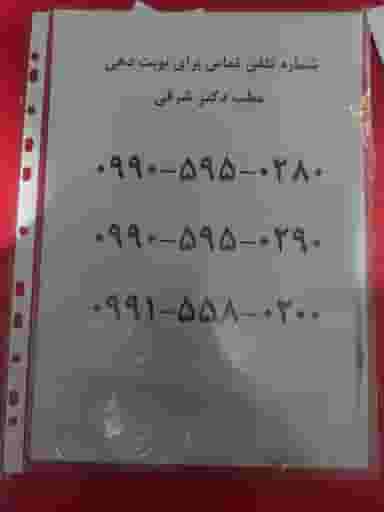 شماره تلفن تماس برای نوبت دهی
مطب دکتر شرفی
۰۹۹۰-۵۹۵-۰۲۸۰
۰۹۹۰-۵۹۵-۰۲۹۰
۰۹۹۱-۵۵۸-۰۲۰۰